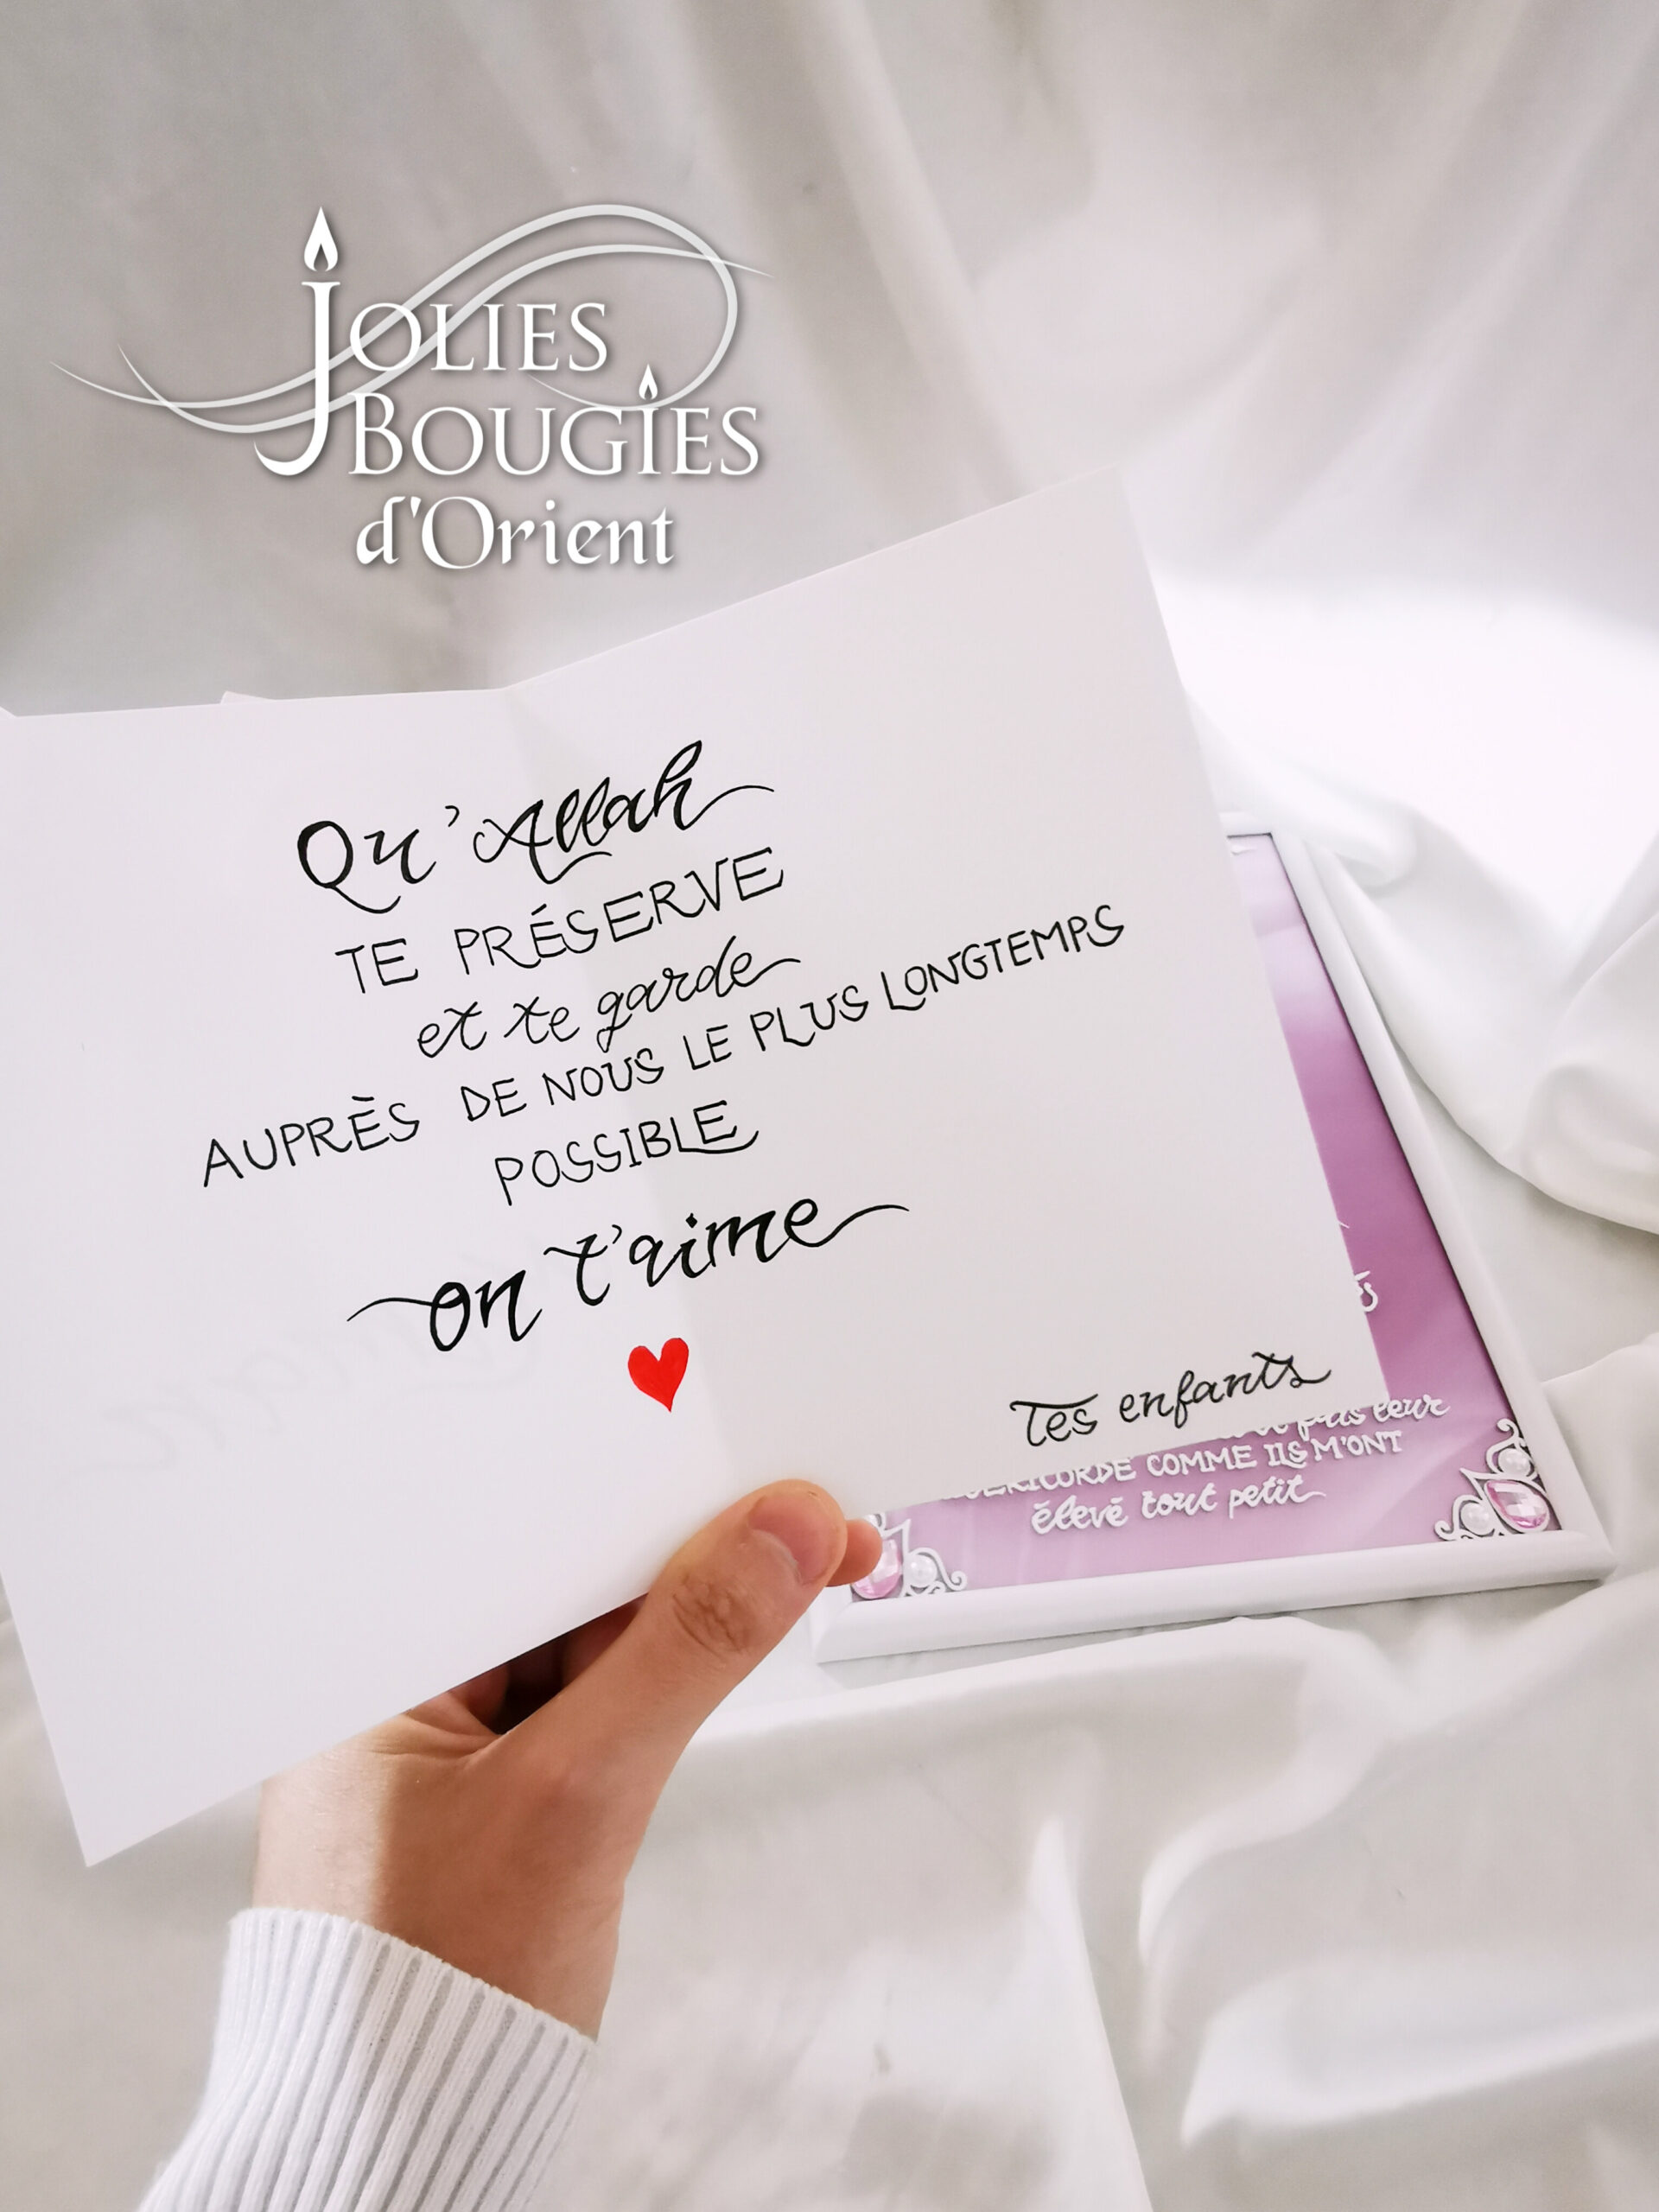 JOLIES
BOUGIES
d'Orient
Qu'Allah
TE PRÉSERVE
et te garde
AUPRÈS DE NOUS LE PLUS LONGTEMPS
POSSIBLE
on t'aime
Tes enfants
leur
COMME ILS M'ONT
élevé tout petit